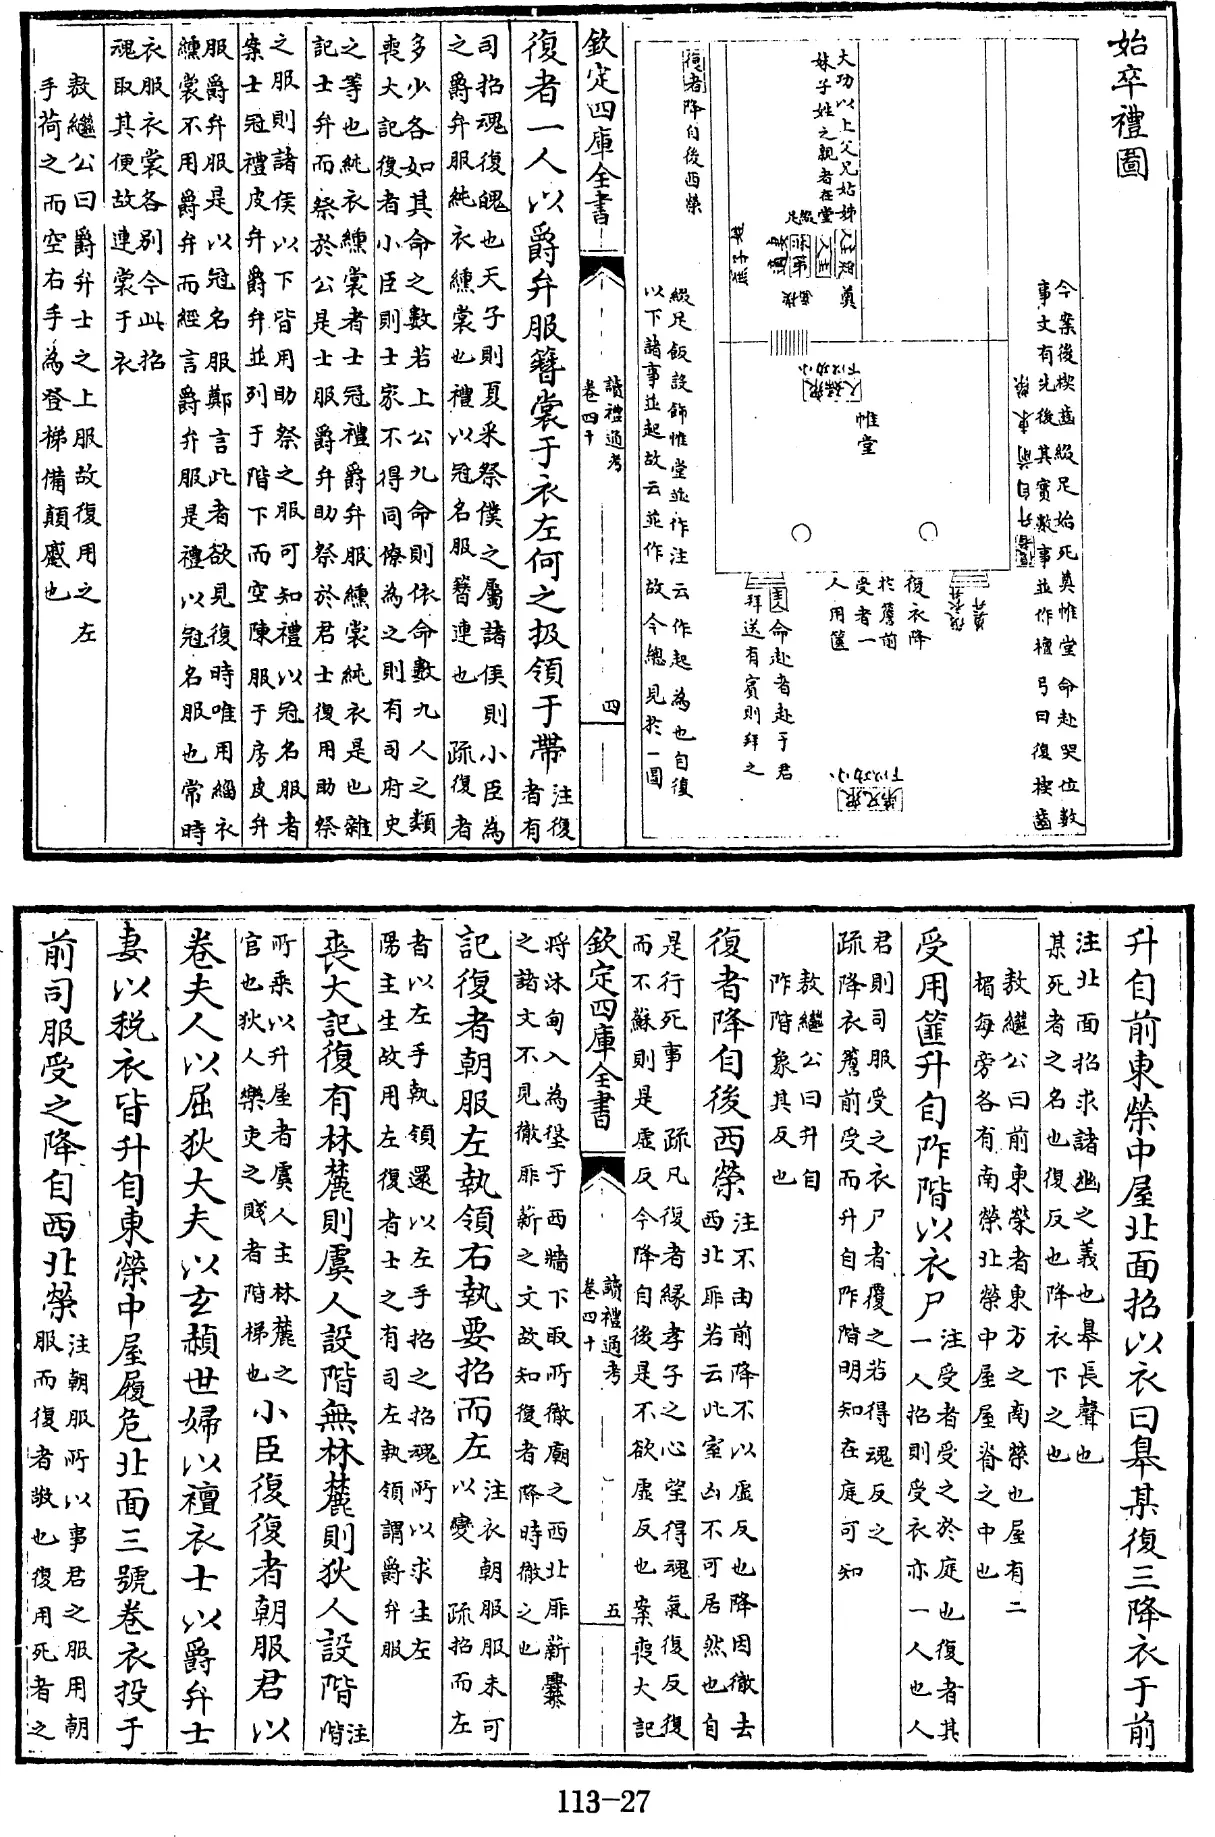 始卒禮圖
今案復楔齒綴足始死奠帷堂命赴哭位數
事文有先後其實數事並作檀弓曰復楔齒
綴足飯設飾帷堂並作注云作起為也自復
以下諸事並起故云並作故今總見於一圖
大功以上父兄姑姊
妹子姓之親者在堂
復者降自後西榮
奠
帷堂
復衣降
於簷前
受者一
人用篋
主人命赴者赴于君
拜送有賓則拜之
欽定四庫全書
讀禮通考
卷四十
四
復者一人以爵弁服簪裳于衣左何之扱領于帶
注復
者有
司招魂復魄也天子則夏采祭僕之屬諸侯則小臣為
之爵弁服純衣纁裳也禮以冠名服簪連也 疏復者
多少各如其命之數若上公九命則依命數九人之類
喪大記復者小臣則士家不得同僚為之則有司府史
之等也純衣纁裳者士冠禮爵弁服纁裳純衣是也雜
記士弁而祭於公是士服爵弁助祭於君士復用助祭
之服則諸侯以下皆用助祭之服可知禮以冠名服者
案士冠禮皮弁爵弁並列于階下而空陳服于房皮弁
服爵弁服是以冠名服鄭言此者欲見復時唯用緇衣
纁裳不用爵弁而經言爵弁服是禮以冠名服也常時
衣服衣裳各別今此招
魂取其便故連裳于衣
敖繼公曰爵弁士之上服故復用之左
手荷之而空右手為登梯備顛蹙也
升自前東榮中屋北面招以衣曰臯某復三降衣于前
注北面招求諸幽之義也臯長聲也
某死者之名也復反也降衣下之也
敖繼公曰前東榮者東方之南榮也屋有二
楣每旁各有南榮北榮中屋屋脊之中也
受用篋升自阼階以衣尸
注受者受之於庭也復者其
一人招則受衣亦一人也人
君則司服受之衣尸者覆之若得魂反之
疏降衣簷前受而升自阼階明知在庭可知
敖繼公曰升自
阼階象其反也
復者降自後西榮
注不由前降不以虛反也降因徹去
西北厞若云此室凶不可居然也自
是行死事 疏凡復者緣孝子之心望得魂氣復反復
而不蘇則是虛反今降自後是不欲虛反也案喪大記
欽定四庫全書
讀禮通考
卷四十
五
將沐甸入為垼于西牆下取所徹廟之西北厞薪爨
之諸文不見徹厞薪之文故知復者降時徹之也
記復者朝服左執領右執要招而左
注衣朝服服未可
以變 疏招而左
者以左手執領還以左手招之招魂所以求生左
陽主生故用左復者士之有司左執領謂爵弁服
喪大記復有林麓則虞人設階無林麓則狄人設階
注
階
所乘以升屋者虞人主林麓之
官也狄人樂吏之賤者階梯也
小臣復復者朝服君以
卷夫人以屈狄大夫以玄赬世婦以襢衣士以爵弁士
妻以稅衣皆升自東榮中屋履危北面三號卷衣投于
前司服受之降自西北榮
注朝服所以事君之服用朝
服而復者敬也復用死者之
113-27